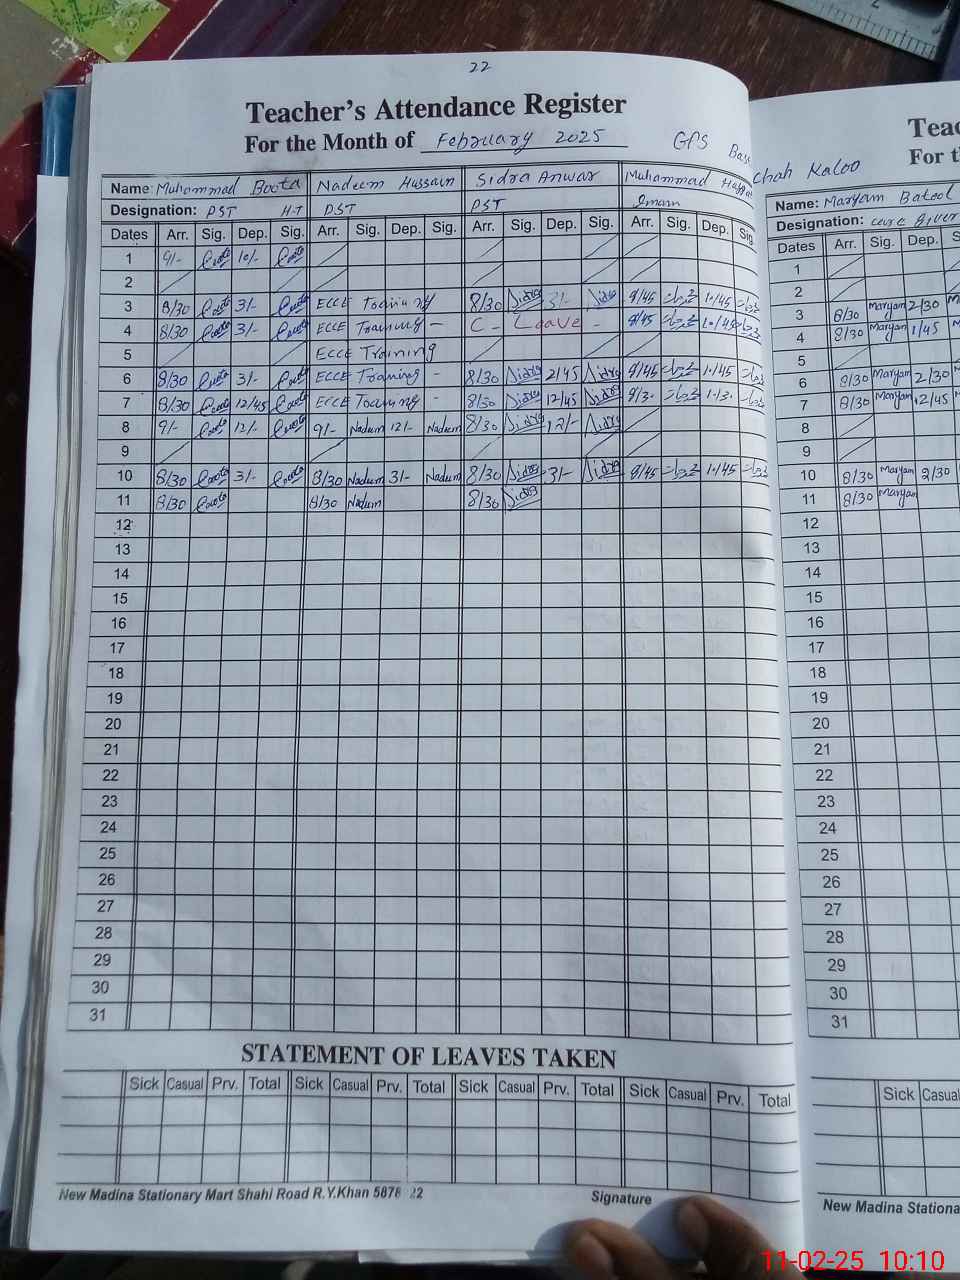 22
Teacher's Attendance Register
For the Month of February 2025 GPS Bas
Name: Muhammad Boota Nadeem Hussain Sidra Anwar Muhammad
Designation: PST H.T PST PST Imam
Dates Arr. Sig. Dep. Sig. Arr. Sig. Dep. Sig. Arr. Sig. Dep. Sig. Arr. Sig. Dep. Sig.
1 9/- Boota 10/- Boota
2
3 8/30 Boota 3/- Boota ECCE Training 8/30 Sidra 3/- Sidra 9/45 10/45
4 8/30 Boota 3/- Boota ECCE Training - C - Leave - 9/45 10/45
5 ECCE Training
6 8/30 Boota 3/- Boota ECCE Training - 8/30 Sidra 2/45 Sidra 9/45 1/45
7 8/30 Boota 12/45 Boota ECCE Training - 8/30 Sidra 12/45 Sidra 9/30
8 9/- Boota 12/- Boota 9/- Nadeem 12/- Nadeem 8/30 Sidra 12/- Sidra
9
10 8/30 Boota 3/- Boota 8/30 Nadeem 3/- Nadeem 8/30 Sidra 3/- Sidra 9/45 1/45
11 8/30 Boota 8/30 Nadeem 8/30 Sidra
12
13
14
15
16
17
18
19
20
21
22
23
24
25
26
27
28
29
30
31
STATEMENT OF LEAVES TAKEN
Sick Casual Prv. Total Sick Casual Prv. Total Sick Casual Prv. Total Sick Casual Prv. Total
New Madina Stationary Mart Shahi Road R.Y.Khan 5878 22 Signature
Teac
For th
chah Kaloo
Name: Maryam Batool
Designation: care giver
Dates Arr. Sig. Dep.
1
2
3 8/30 Maryam 2/30
4 8/30 Maryam 1/45
5
6 8/30 Maryam 2/30
7 8/30 Maryam 12/45
8
9
10 8/30 Maryam 2/30
11 8/30 Maryam
12
13
14
15
16
17
18
19
20
21
22
23
24
25
26
27
28
29
30
31
Sick Casual
New Madina Stationa
11-02-25 10:10